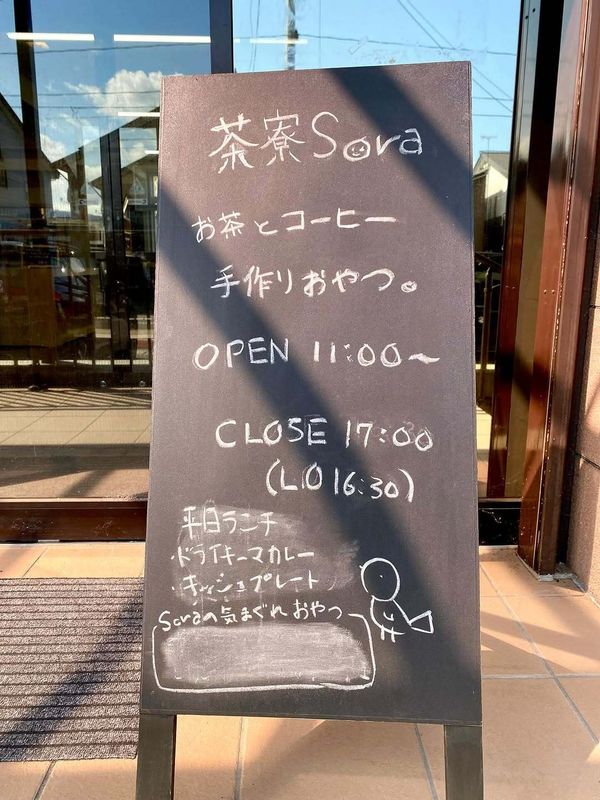 茶寮Sora
お茶とコーヒー
手作りおやつ。
OPEN 11:00〜
CLOSE 17:00
(LO 16:30)
平日ランチ
・ドライキーマカレー
・キッシュプレート
Soraの気まぐれおやつ